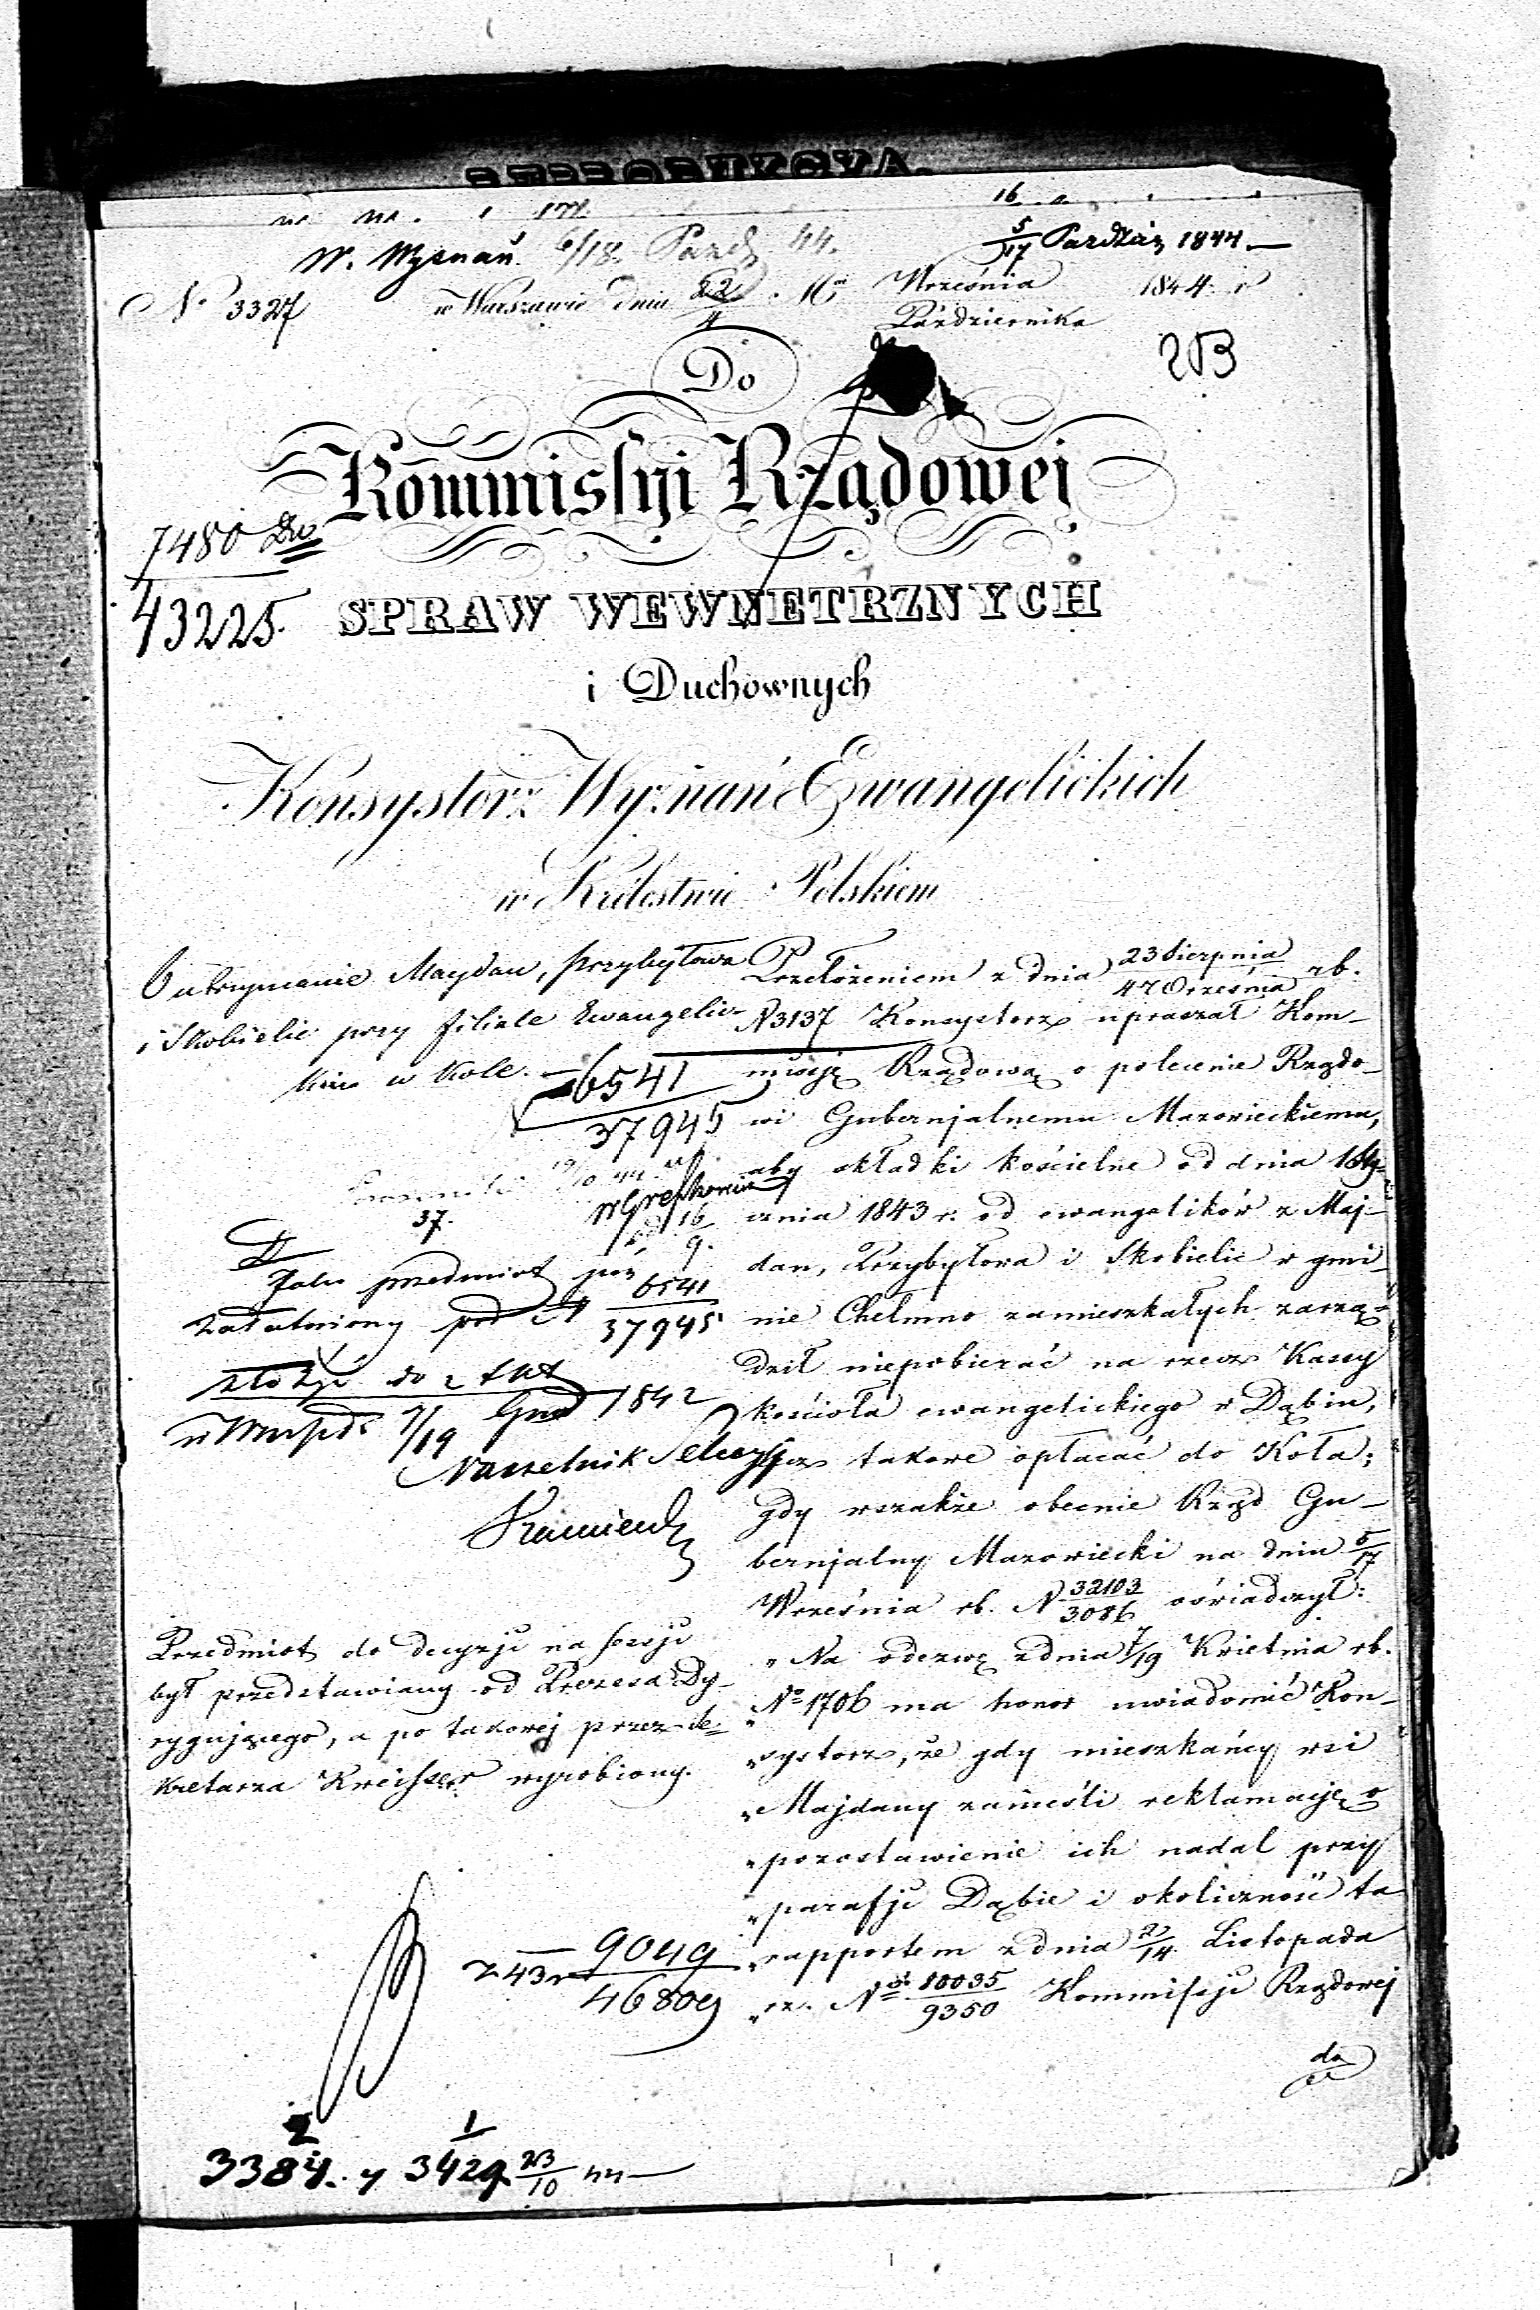 W. Wyznań 6/18 Paźdz 44.
5/17 Paźdźier 1844.
No 3327
w Warszawie dnia 22/4 Września Października 1844 r
203
Do
Kommissyi Rządowej
7480
43225.
SPRAW WEWNETRZNYCH
i Duchownych
Konsystorz Wyznań Ewangelickich
w Królestwie Polskiem
O utrzymanie Maydan, Przybyłowa
i Skobielic przy filiale Ewangelic-
kim w Kole.
6541
37945
37.
16
9.
Jako przedmiot już
załatwiony pod N 6541/37945
złożyć do akt
7/19 Grud 1842
Naczelnik Sekcyi
Przedmiot do decyzji na sessji
był przedstawiany od Prezesa Dy-
rygującego, a po takowej przez Se-
kretarza Kreisser wyrobiony.
z 43 r 9049
46809
3384. y 3429 23/10 44
Przełożeniem z dnia 23 Sierpnia/4 Września rb.
N 3137 Konsystorz upraszał Kom-
missję Rządową o polecenie Rządo-
wi Gubernjalnemu Mazowieckiemu,
aby składki kościelne od dnia 1 Sty-
cznia 1843 r. od ewangelików z Maj-
dan, Przybyłowa i Skobielic w gmi-
nie Chełmno zamieszkałych zarzą-
dził niepobierać na rzecz Kassy
kościoła ewangelickiego w Dąbiu,
lecz takowe opłacać do Koła;
gdy wszakże obecnie Rząd Gu-
bernjalny Mazowiecki na dniu 5/17
Września rb. N 32103/3086 oświadczył:
„Na odezwę z dnia 7/19 Kwietnia rb.
„No 1706 ma honor uwiadomić Kon-
„systorz, że gdy mieszkańcy wsi
„Majdany zanieśli reklamacje o
„pozostawienie ich nadal przy
„parafji Dąbie i okoliczność ta
„rapportem z dnia 2/14 Listopada
„rz. No 10035/9350 Kommissji Rządowej
do